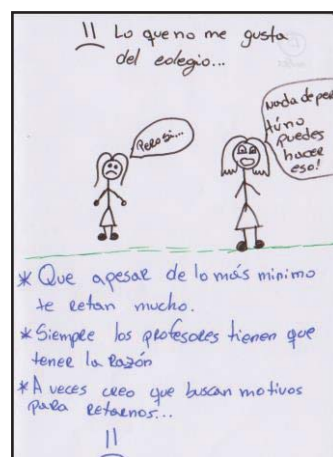 Lo que no me gusta
del colegio...
Pero si...
Nada de pe
tú no
puedes
hacer
eso!
* Que apesar de lo más minimo
te retan mucho.
* Siempre los profesores tienen que
tener la razón
* A veces creo que buscan motivos
para retarnos...